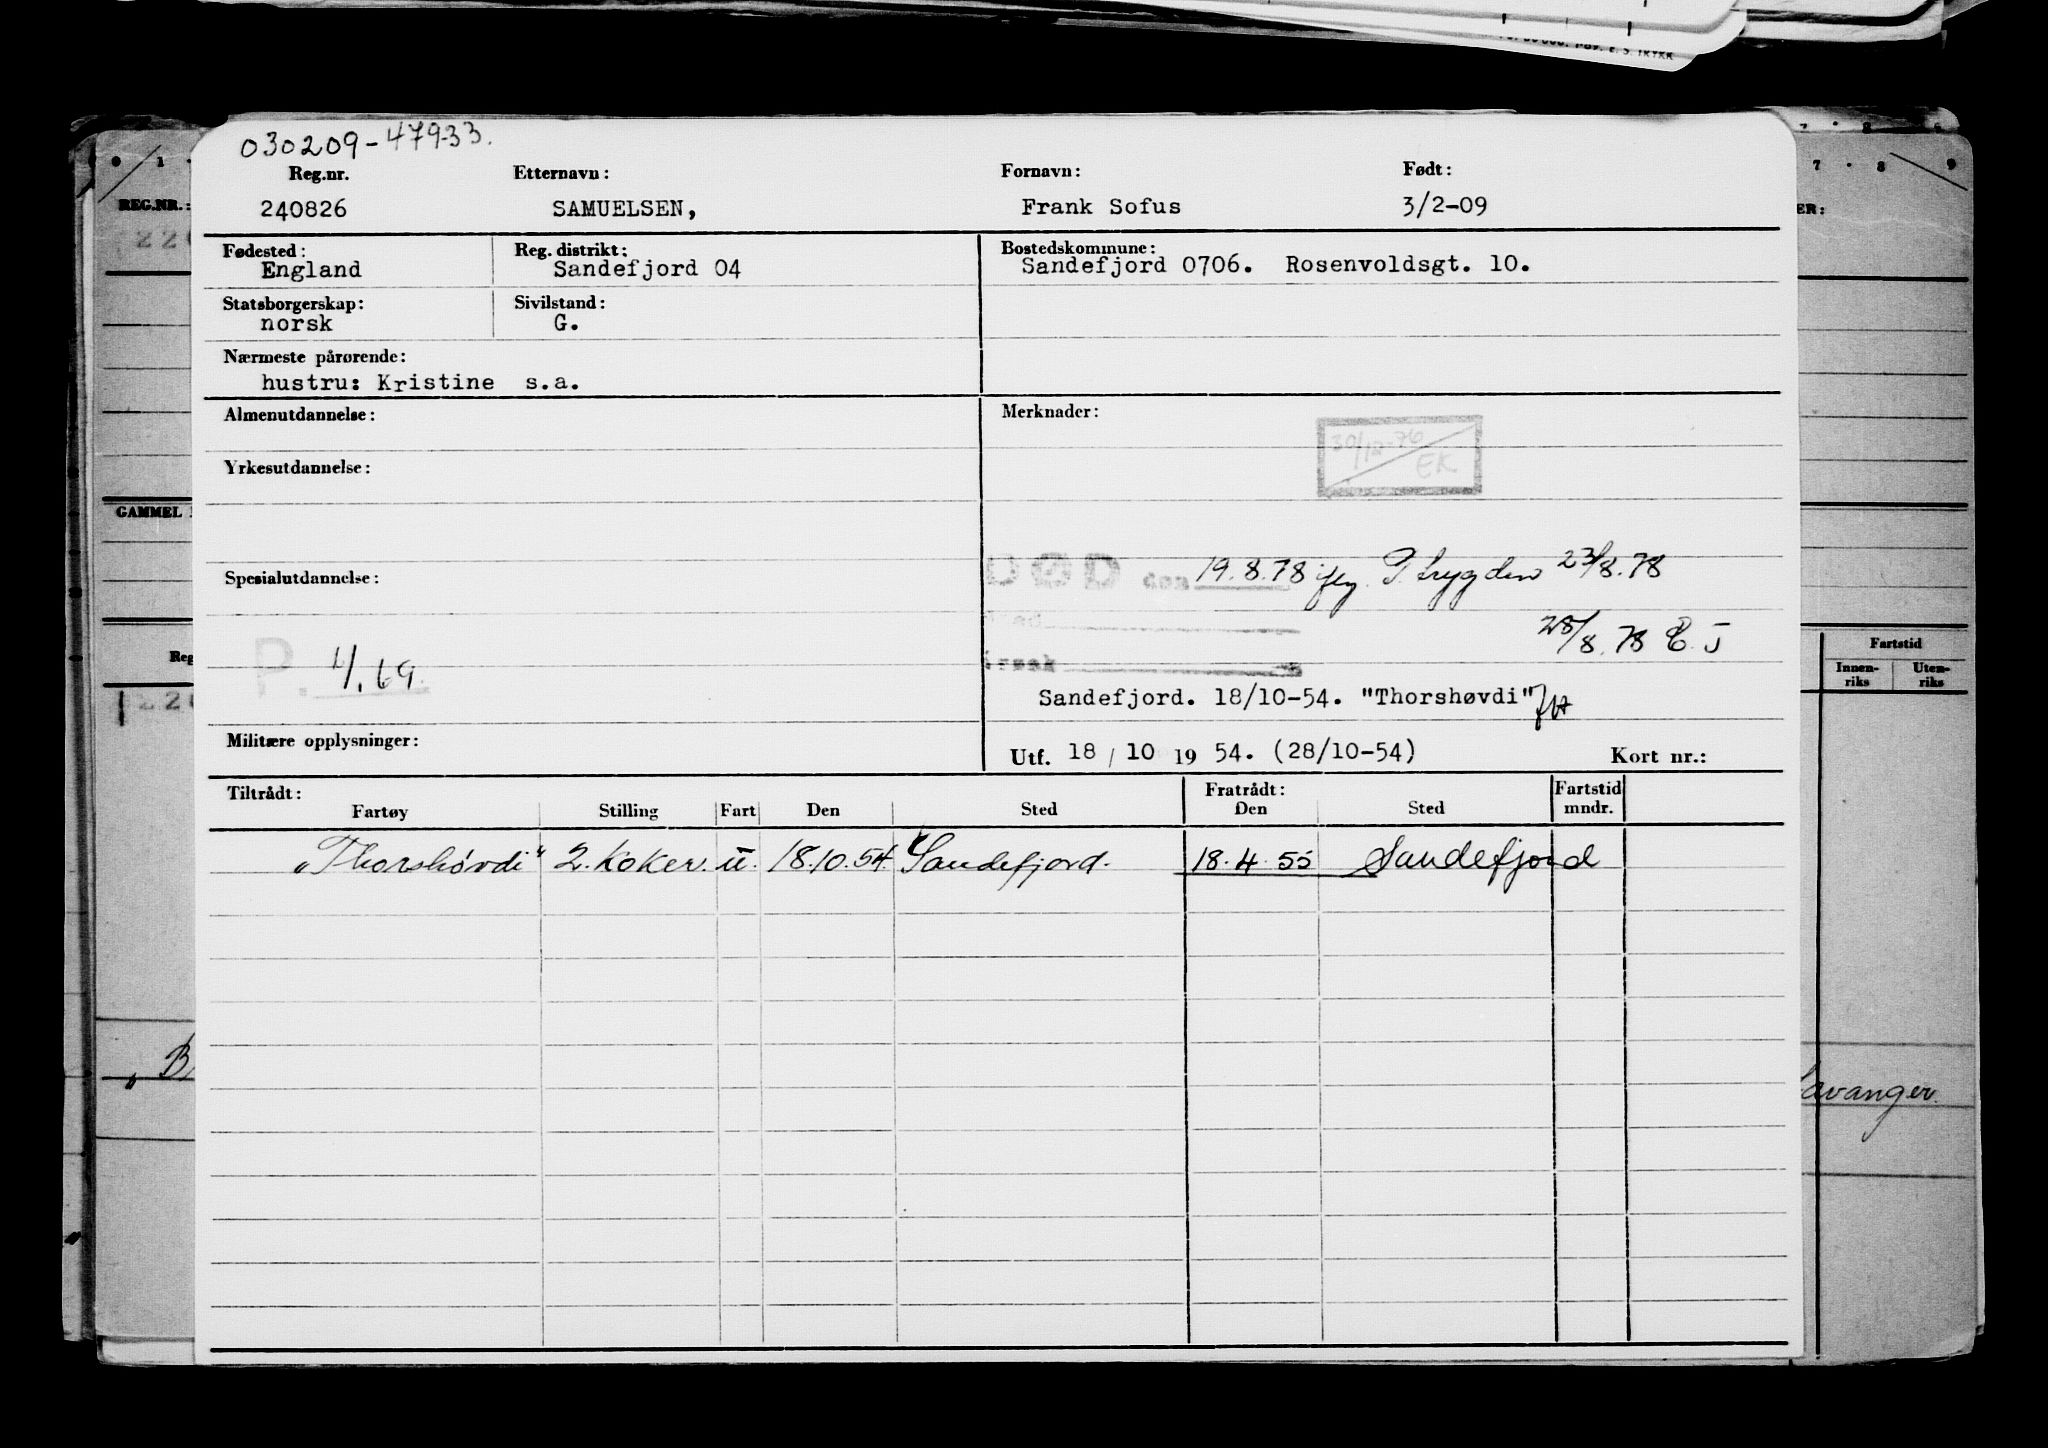 030209-47933.
Reg.nr. Etternavn: Fornavn: Født:
240826 SAMUELSEN, Frank Sofus 3/2-09
Fødested: Reg. distrikt: Bostedskommune:
England Sandefjord 04 Sandefjord 0706. Rosenvoldsgt. 10.
Statsborgerskap: Sivilstand:
norsk G.
Nærmeste pårørende:
hustru: Kristine s.a.
Almenutdannelse: Merknader:
30/12-76
EK
Yrkesutdannelse:
DØD den 19.8.78 iflg. P. trygden 23/8.78
Spesialutdannelse:
28/8.78 E.J
P. 1/.69.
Sandefjord. 18/10-54. "Thorshøvdi"
Militære opplysninger:
Utf. 18/10 19 54. (28/10-54) Kort nr.:
Tiltrådt: Fratrådt: Fartstid
Fartøy Stilling Fart Den Sted Den Sted mndr.
"Thorshøvdi" 2. Koker. u. 18.10.54. Sandefjord. 18.4.55 Sandefjord
0 1
REG.NR.:
GAMMEL
Reg
„B
7 8 9
ER:
Fartstid
Innen-
riks
Uten-
riks
avanger.